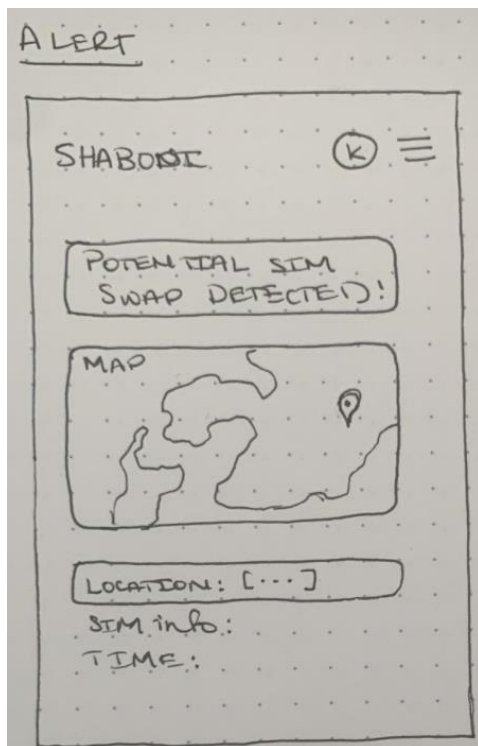 ALERT
SHABONI K
POTENTIAL SIM
SWAP DETECTED!
MAP
LOCATION: [...]
SIM info:
TIME: